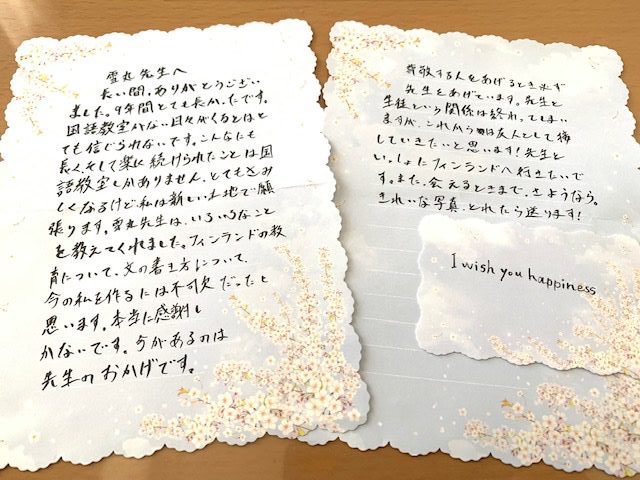 雲丸先生へ
長い間、ありがとうござい
ました。9年間とても長かったです。
国語教室がない日々がくるとはと
ても信じられないです。こんなにも
長く、そして楽に続けられたことは国
語教室しかありません。とてもさみ
しくなるけど、私は新しい土地で頑
張ります。雲丸先生は、いろいろなこと
を教えてくれました。フィンランドの教
育について、文の書き方について、
今の私を作るには不可欠だったと
思います。本当に感謝し
かないです。今があるのは
先生のおかげです。
尊敬する人をあげるとき必ず
先生をあげています。先生と
生徒という関係は終わってしまい
ますが、これからは友人として接
していきたいと思います!先生と
いっしょにフィンランドへ行きたいで
す。また、会えるときまで、さようなら。
きれいな写真、とれたら送ります!
I wish you happiness